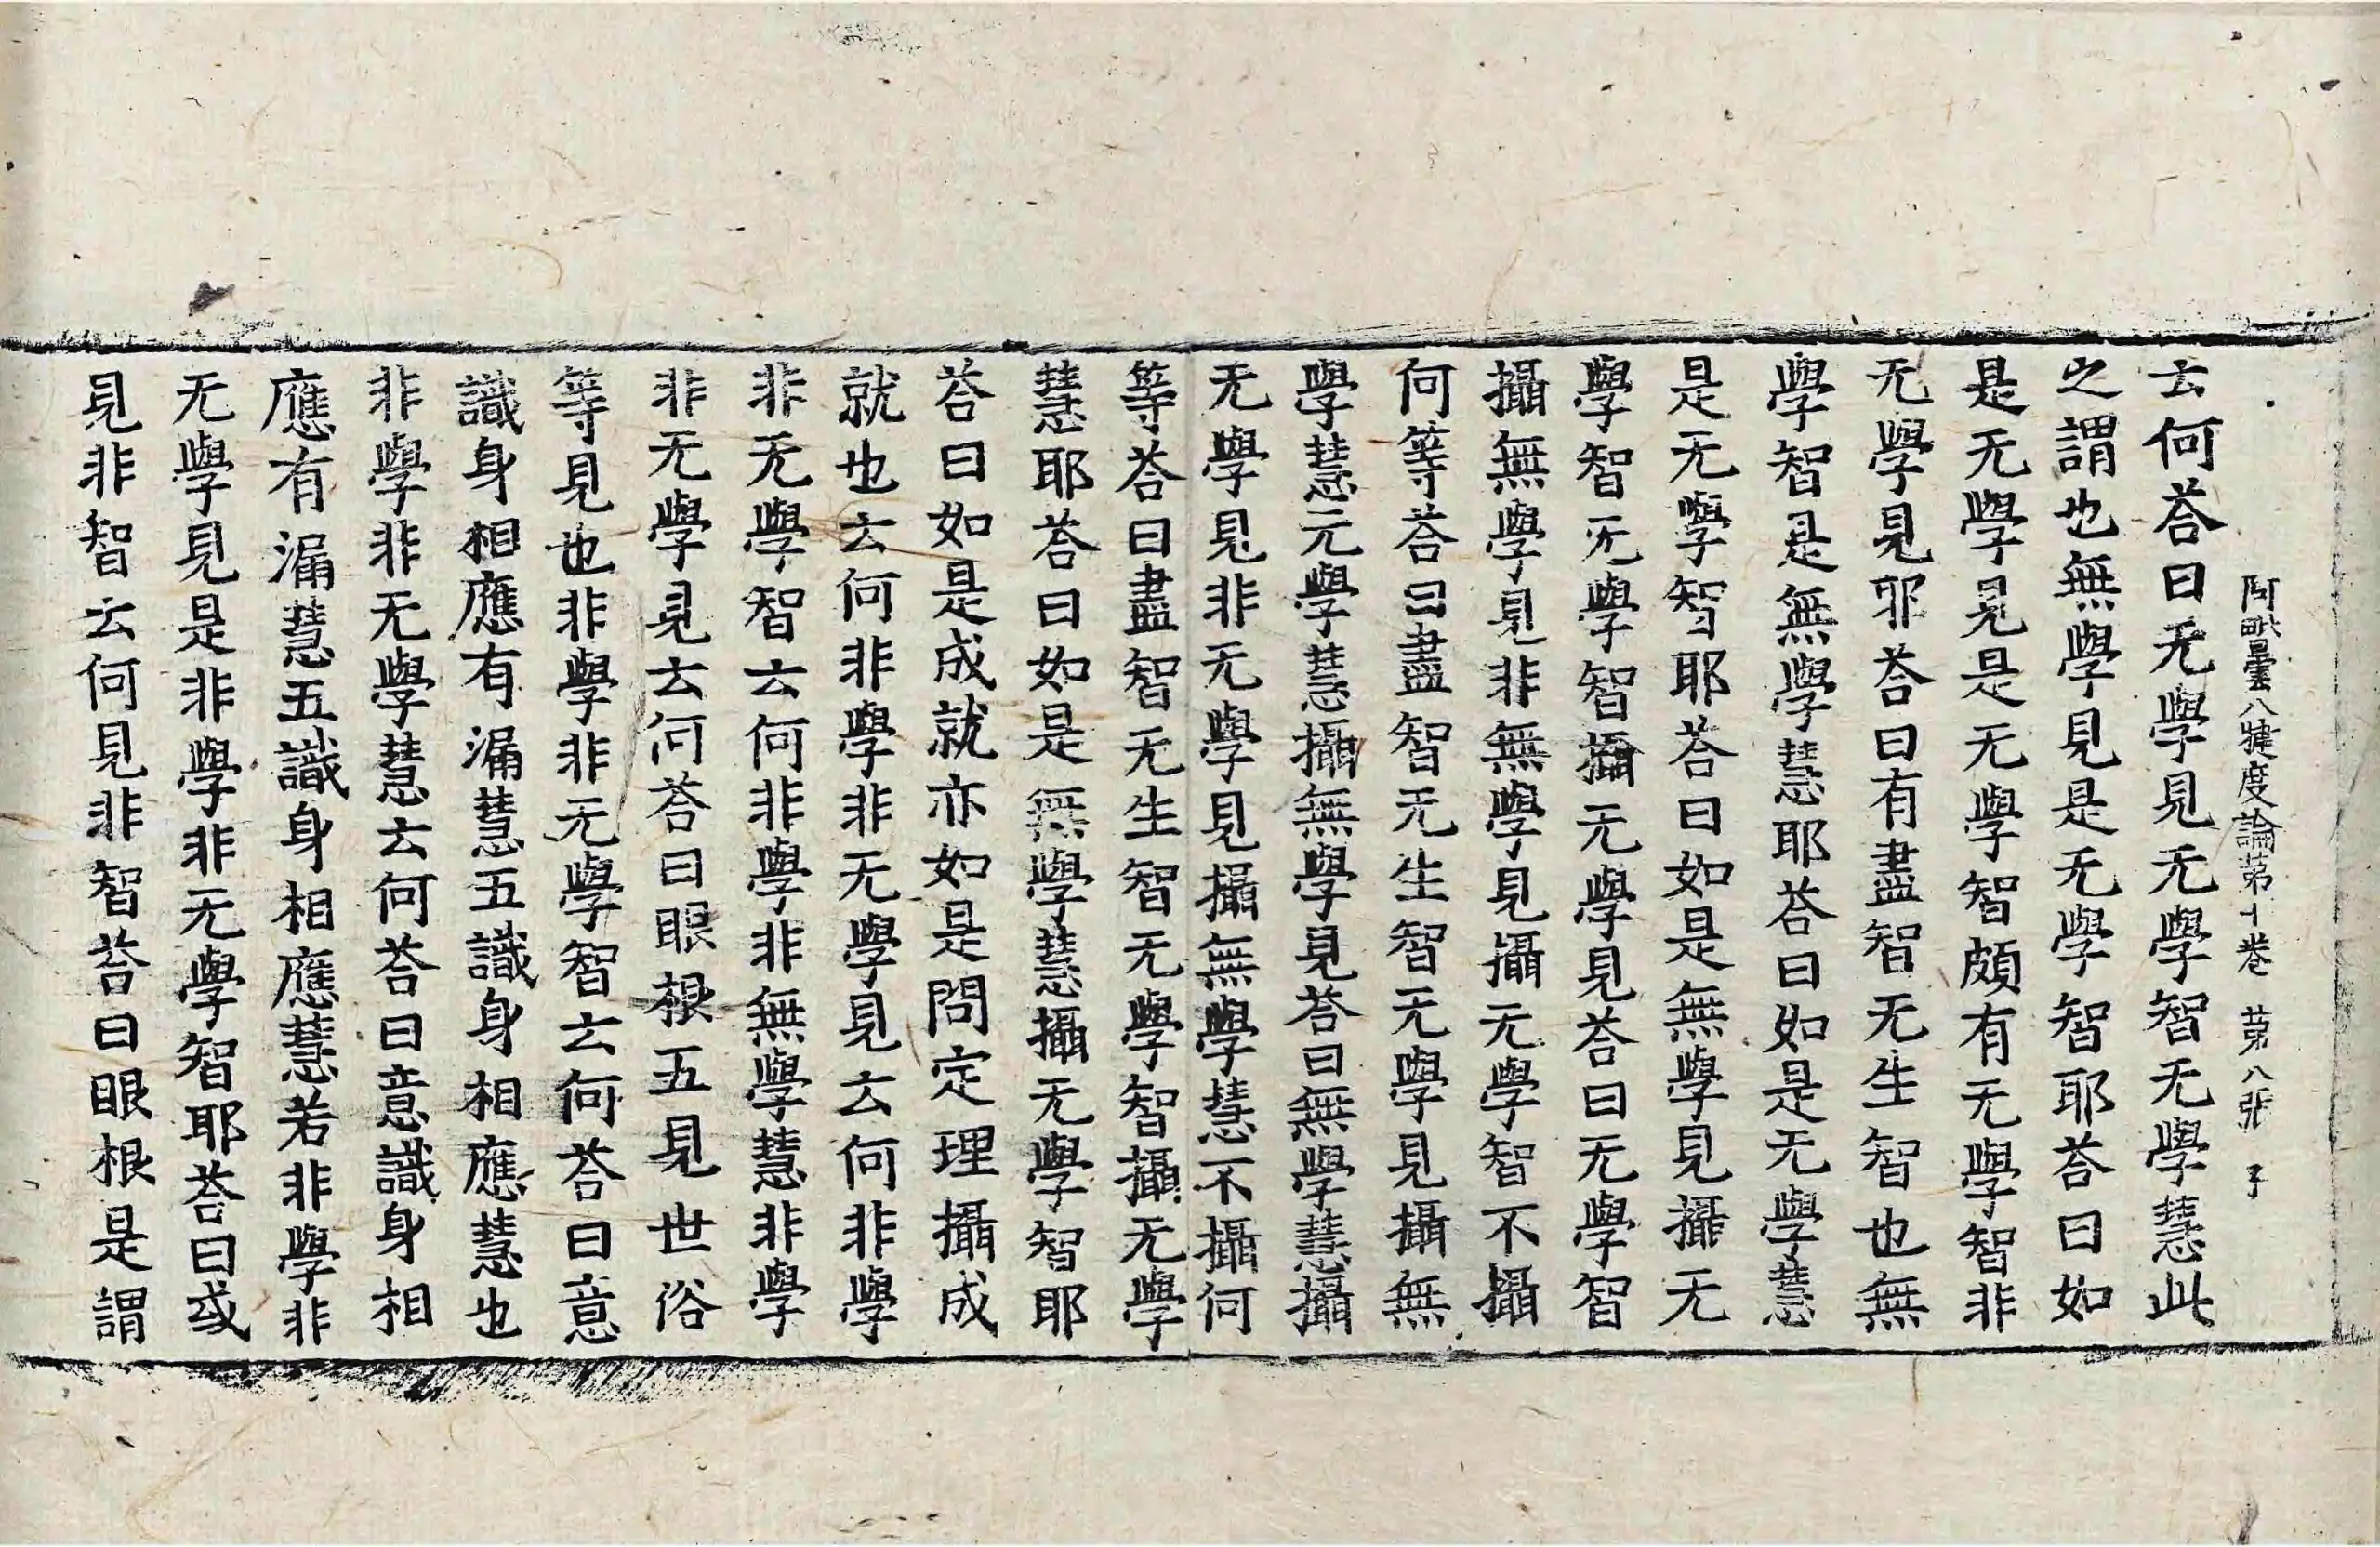 阿毗曇八犍度論苐十卷 苐八張 子
云何荅曰无學見无學智无學慧此
之謂也無學見是无學智耶荅曰如
是无學見是无學智頗有无學智非
无學見耶荅曰有盡智无生智也無
學智是無學慧耶荅曰如是无學慧
是无學智耶荅曰如是無學見攝无
學智无學智攝无學見荅曰无學智
攝無學見非無學見攝无學智不攝
何等荅曰盡智无生智无學見攝無
學慧元學慧攝無學見荅曰無學慧攝
无學見非无學見攝無學慧不攝何
等荅曰盡智无生智无學智攝无學
慧耶荅曰如是無學慧攝无學智耶
荅曰如是成就亦如是問定理攝成
就也云何非學非无學見云何非學
非无學智云何非學非無學慧非學
非无學見云何荅曰眼根五見世俗
等見也非學非无學智云何荅曰意
識身相應有漏慧五識身相應慧也
非學非无學慧云何荅曰意識身相
應有漏慧五識身相應慧若非學非
无學見是非學非无學智耶荅曰或
見非智云何見非智荅曰眼根是謂